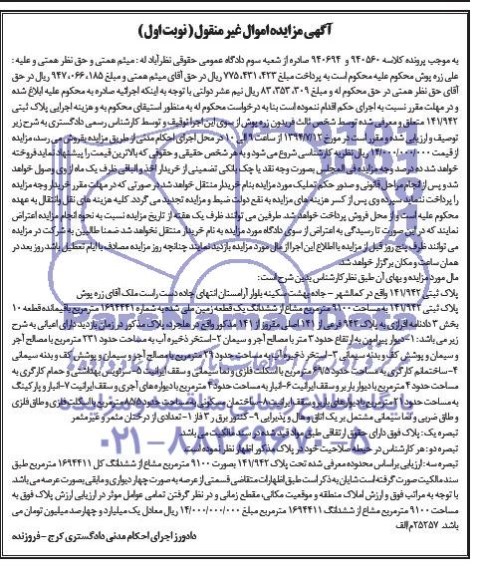 آگهی مزایده اموال غیر منقول (نوبت اول)
به موجب پرونده کلاسه ۹۴۰۵۶۰ و ۹۴۰۶۹۴ صادره از شعبه سوم دادگاه عمومی حقوقی نظرآباد له : میثم همتی و حق نظر همتی و علیه :
علی زره پوش محکوم علیه محکوم است به پرداخت مبلغ ۷۷۵,۴۳۱,۴۲۳ ریال در حق آقای میثم همتی و مبلغ ۹۴۷,۰۶۶,۱۸۵ ریال در حق
آقای حق نظر همتی در حق محکوم له و مبلغ ۸۳,۳۵۳,۳۰۹ ریال نیم عشر دولتی با توجه به اینکه اجرائیه صادره به محکوم علیه ابلاغ شده
و در مهلت مقرر نسبت به اجرای حکم اقدام ننموده است بنا به درخواست محکوم له به منظور استیفای محکوم به و هزینه اجرایی پلاک ثبتی
۱۴۱/۹۴۲ متعلق و معرفی شده توسط شخص ثالث فریدون زره پوش از سوی این اجرا توقیف و توسط کارشناس رسمی دادگستری به شرح زیر
توصیف و ارزیابی شده و مقرر است در مورخ ۱۳۹۴/۷/۱۳ از ساعت ۹ الی ۱۰ در محل اجرای احکام مدنی از طریق مزایده بفروش می رسد، مزایده
از قیمت ۱۴/۰۰۰/۰۰۰/۰۰۰ ریال نظریه کارشناسی شروع می شود و به هر شخص حقیقی و حقوقی که بالاترین قیمت را پیشنهاد نماید فروخته
خواهد شد ده درصد وجه مزایده فی المجلس بصورت وجه نقد یا چک بانکی تضمینی از خریدار اخذ و الباقی ظرف یک ماه از وی وصول خواهد
شد و پس از انجام مراحل قانونی و صدور حکم تملیک مورد مزایده بنام خریدار منتقل خواهد شد در صورتی که در مهلت مقرر خریدار وجه مزایده
را پرداخت ننماید سپرده وی پس از کسر هزینه های مزایده به نفع دولت ضبط و مزایده تجدید می گردد. کلیه هزینه های نقل و انتقال به عهده
محکوم علیه است و از محل فروش پرداخت خواهد شد. طرفین می توانند ظرف یک هفته از تاریخ مزایده نسبت به نحوه انجام مزایده اعتراض
نمایند که در این صورت تا رسیدگی به اعتراض از سوی دادگاه مورد مزایده به نام خریدار منتقل نخواهد شد ضمنا طالبین به شرکت در مزایده
می توانند ظرف پنج روز قبل از مزایده با اطلاع این اجرا از مال مورد مزایده بازدید نمایند چنانچه روز مزایده مصادف با ایام تعطیل باشد روز بعد در
همان ساعت و مکان برگزار خواهد شد.
مال مورد مزایده و بهای آن طبق نظر کارشناس بدین شرح است:
پلاک ثبتی ۱۴۱/۹۴۲ واقع در کمالشهر - جاده بهشت سکینه بلوار آرامستان انتهای جاده دست راست ملک آقای زره پوش
پلاک ثبتی ۱۴۱/۹۴۲ به مساحت ۹۱۰۰ مترمربع مشاع از ششدانگ یک قطعه زمین ملی شده به شماره ۱۶۹۴۴۱۱ مترمربع باقیمانده قطعه ۱۰
بخش ۳ دادنامه افرازی به پلاک ۹۴۳ فرعی از ۱۴۱ اصلی مفروز از ۱۴۱ مذکور واقع در هلجرد پلاک مذکور در زمان بازدید دارای اعیانی به شرح
زیر می باشد: ۱- دیوار پیرامون به ارتفاع حدود ۳ متر با مصالح آجر و سیمان ۲- استخر ذخیره آب به مساحت حدود ۲۳۱ مترمربع با مصالح آجر
و سیمان و پوشش کف و بدنه سیمانی ۳- استخر ذخیره آب به مساحت حدود ۲۹ مترمربع با مصالح آجر و سیمان و پوشش کف و بدنه سیمانی
۴- ساختمانهای کارگری به مساحت حدود ۶۹/۵ مترمربع با اسکلت فلزی و نما سیمانی و سقف ایرانیت ۵- سرویس بهداشتی و حمام کارگری به
مساحت حدود ۴ مترمربع با دیوار باربر و سقف ایرانیت ۶- انبار به مساحت حدود ۴ مترمربع با دیواره های آجری و سقف ایرانیت ۷- انبار و پارکینگ
به مساحت حدود ۲۱ مترمربع با دیوارهای باربر و سقف ایرانیت ۸- ساختمان مسکونی به مساحت حدود ۸۷/۵ مترمربع با اسکلت فلزی و طاق فلزی
و طاق ضربی و نما سیمانی مشتمل بر یک اتاق و هال و پذیرایی ۹- کنتور برق ۳ فاز ۱- تعدادی از درختان مثمر و غیر مثمر
تبصره یک: پلاک فوق دارای حقوق ارتفاقی طبق مواد قید شده در سند مالکیت می باشد.
تبصره دو: هر کارشناس در حیطه صلاحیت خود در پلاک مذکور اظهار نظر نموده است
تبصره سه: ارزیابی براساس محدوده معرفی شده تحت پلاک ۱۴۱/۹۴۲ بصورت ۹۱۰۰ مترمربع مشاع از ششدانگ کل ۱۶۹۴۴۱۱ مترمربع طبق
سند مالکیت صورت گرفته است شایان به ذکر است طبق اظهارات متقاضی قسمتی از عرصه به صورت چهار دیواری و مابقی بصورت عرصه می باشد.
با توجه به مراتب فوق و ارزش املاک منطقه و موقعیت مکانی، مقطع زمانی و در نظر گرفتن تمامی عوامل موثر در ارزیابی ارزش پلاک فوق به
مساحت ۹۱۰۰ مترمربع مشاع از ششدانگ ۱۶۹۴۴۱۱ مترمربع مبلغ ۱۴/۰۰۰/۰۰۰/۰۰۰ ریال معادل یک میلیارد و چهارصد میلیون تومان می
باشد. ۲۵۲۵۷م الف
دادورز اجرای احکام مدنی دادگستری کرج - فروزنده